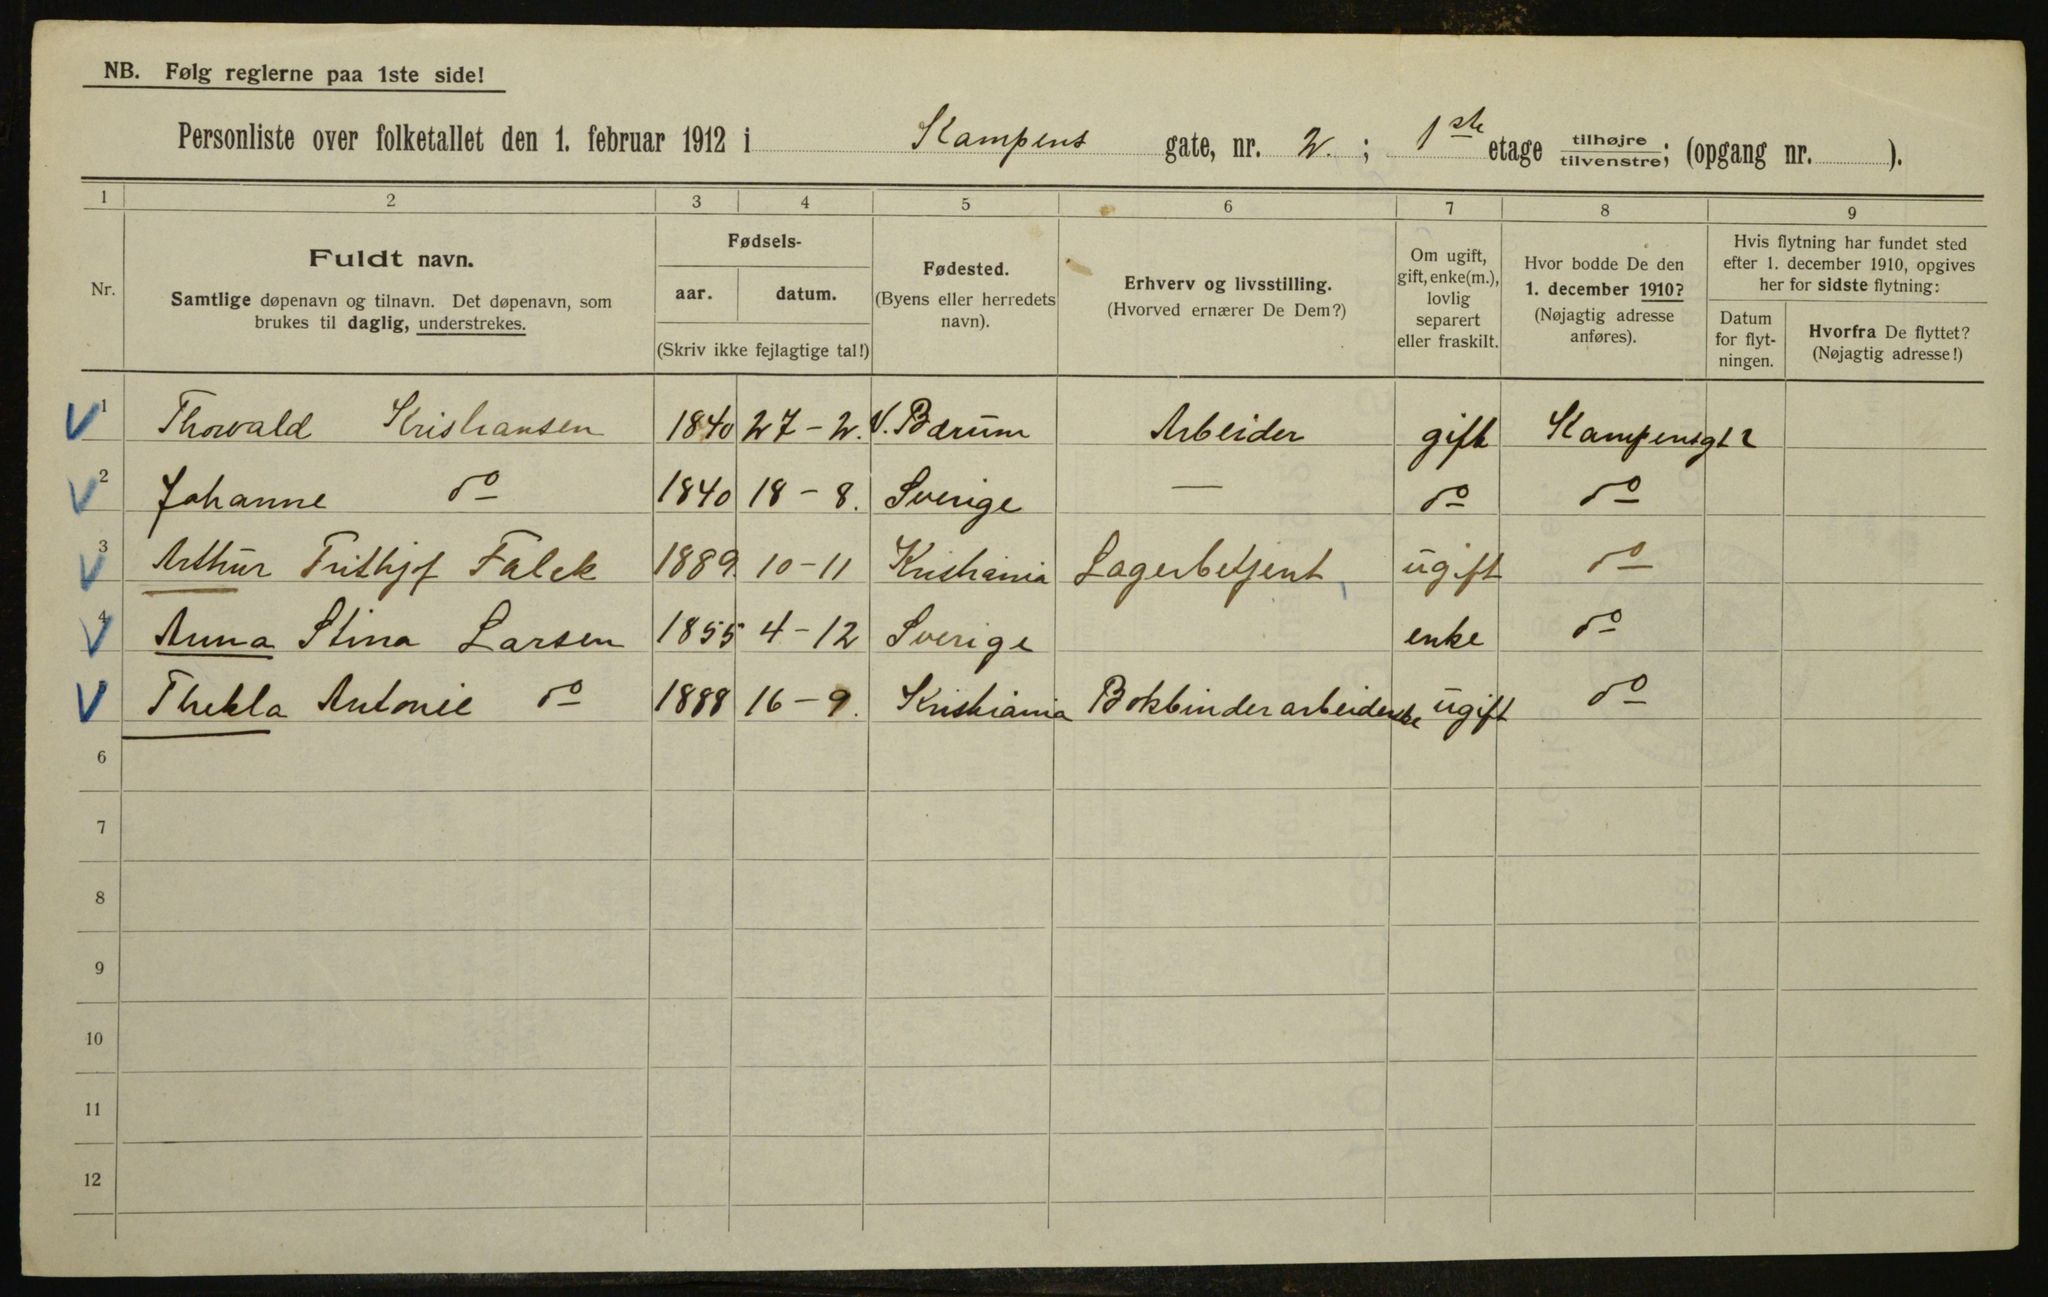 NB. Følg reglerne paa 1ste side!
Personliste over folketallet den 1. februar 1912 i Kampens gate, nr. 2. ; 1ste etage tilhøjre tilvenstre; (opgang nr. ).
1 2 3 4 5 6 7 8 9
Nr.
Fuldt navn.
Samtlige døpenavn og tilnavn. Det døpenavn, som
brukes til daglig, understrekes.
Fødsels-
aar. datum.
(Skriv ikke fejlagtige tal!)
Fødested.
(Byens eller herredets
navn).
Erhverv og livsstilling.
(Hvorved ernærer De Dem?)
Om ugift,
gift, enke(m.),
lovlig
separert
eller fraskilt.
Hvor bodde De den
1. december 1910?
(Nøjagtig adresse
anføres).
Hvis flytning har fundet sted
efter 1. december 1910, opgives
her for sidste flytning:
Datum
for flyt-
ningen.
Hvorfra De flyttet?
(Nøjagtig adresse!)
1 Thorvald Kristiansen 1840 27-2. V. Bærum Arbeider gift Kampensgt 2
2 Johanne do 1840 18-8. Sverige — do do
3 Arthur Frithjof Falck 1889. 10-11 Kristiania Lagerbetjent ugift do
4 Anna Stina Larsen 1855 4-12 Sverige enke do
Thekla Antonie do 1888 16-9. Kristiania Bokbinderarbeiderske ugift do
6
7
8
9
10
11
12